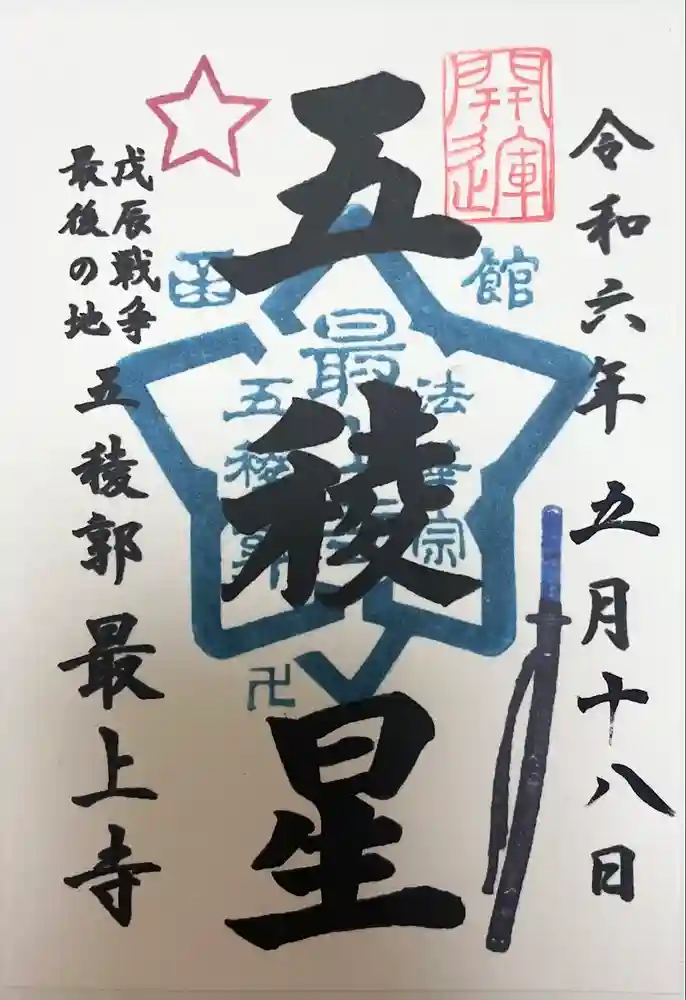 令和六年 五月十八日
開運
五稜星
函館
法華宗
最上寺
五稜郭
卍
戊辰戦争
最後の地
五稜郭 最上寺